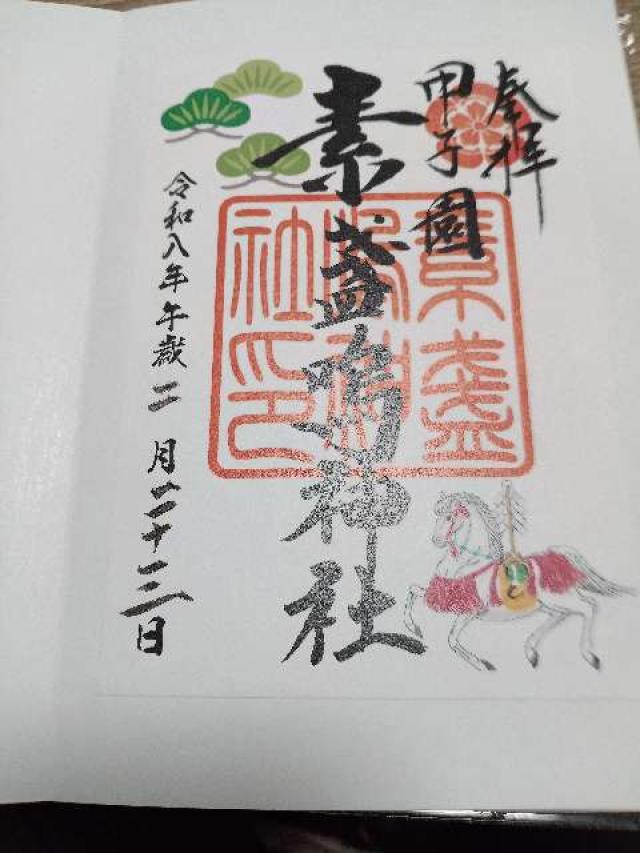 奉拝
甲子園
素盞嗚神社
素盞
嗚神
社印
令和八年午歳二月二十三日